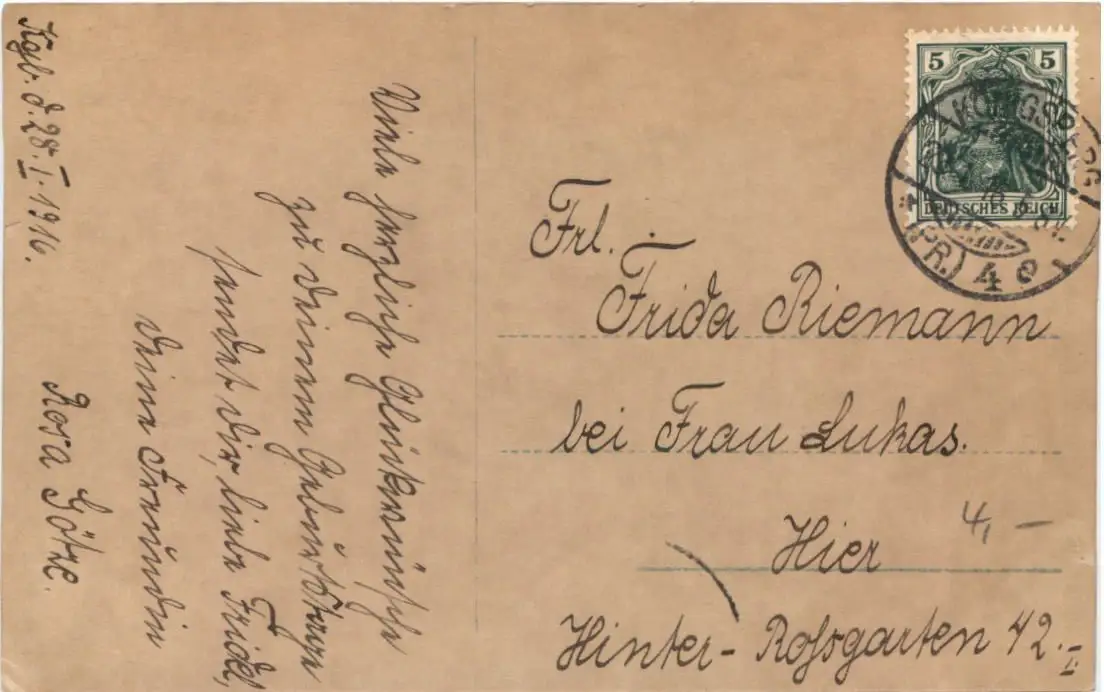 Kgb. d. 28.I.1916.
Viele herzliche Glückwünsche
zu deinem Geburtstage
sendet dir, liebe Fridel,
deine Freundin
Rosa Götze.
5 5
DEUTSCHES REICH
KÖNIGSBERG
(PR.) 4 e
Frl.
Frida Riemann
bei Frau Lukas.
Hier
4,–
Hinter-Roßgarten 42.II